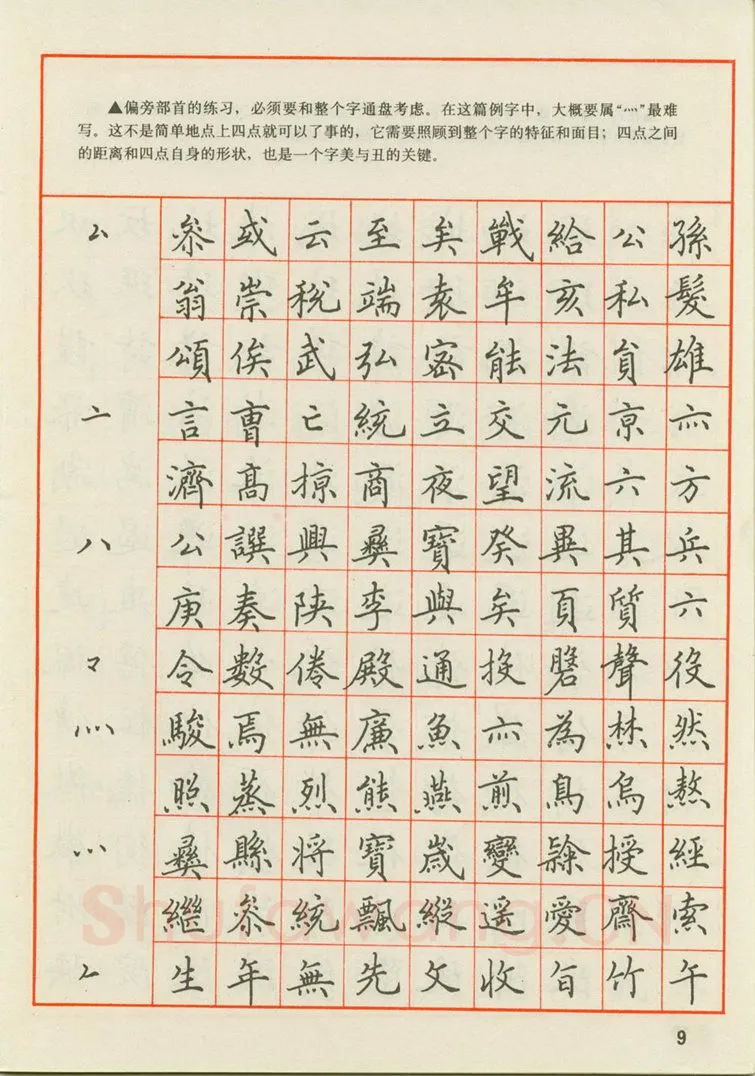 ▲偏旁部首的练习，必须要和整个字通盘考虑。在这篇例字中，大概要属“灬”最难
写。这不是简单地点上四点就可以了事的，它需要照顾到整个字的特征和面目；四点之间
的距离和四点自身的形状，也是一个字美与丑的关键。
厶 参 或 云 至 矣 戰 給 公 孫
翁 崇 税 端 袁 牟 亥 私 髮
頌 俟 武 弘 密 能 法 貟 雄
亠 言 曹 亡 統 立 交 元 京 亦
濟 高 掠 商 夜 望 流 六 方
八 公 譔 興 彝 寶 癸 異 其 兵
庚 奏 陕 李 與 矣 頁 質 六
龴 令 數 倦 殿 通 投 聲 役
灬 駿 焉 無 廉 魚 亦 為 然
照 蒸 烈 熊 燕 煎 鳥 烏 熬
彝 縣 将 寶 歲 變 授 經
繼 参 統 飄 縱 遥 愛 齋 索
𠂉 生 年 無 先 文 收 旨 竹 午
Shufawang.CN
9